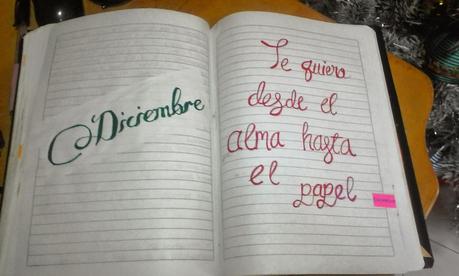 Diciembre
Te quiero
desde el
alma hasta
el papel